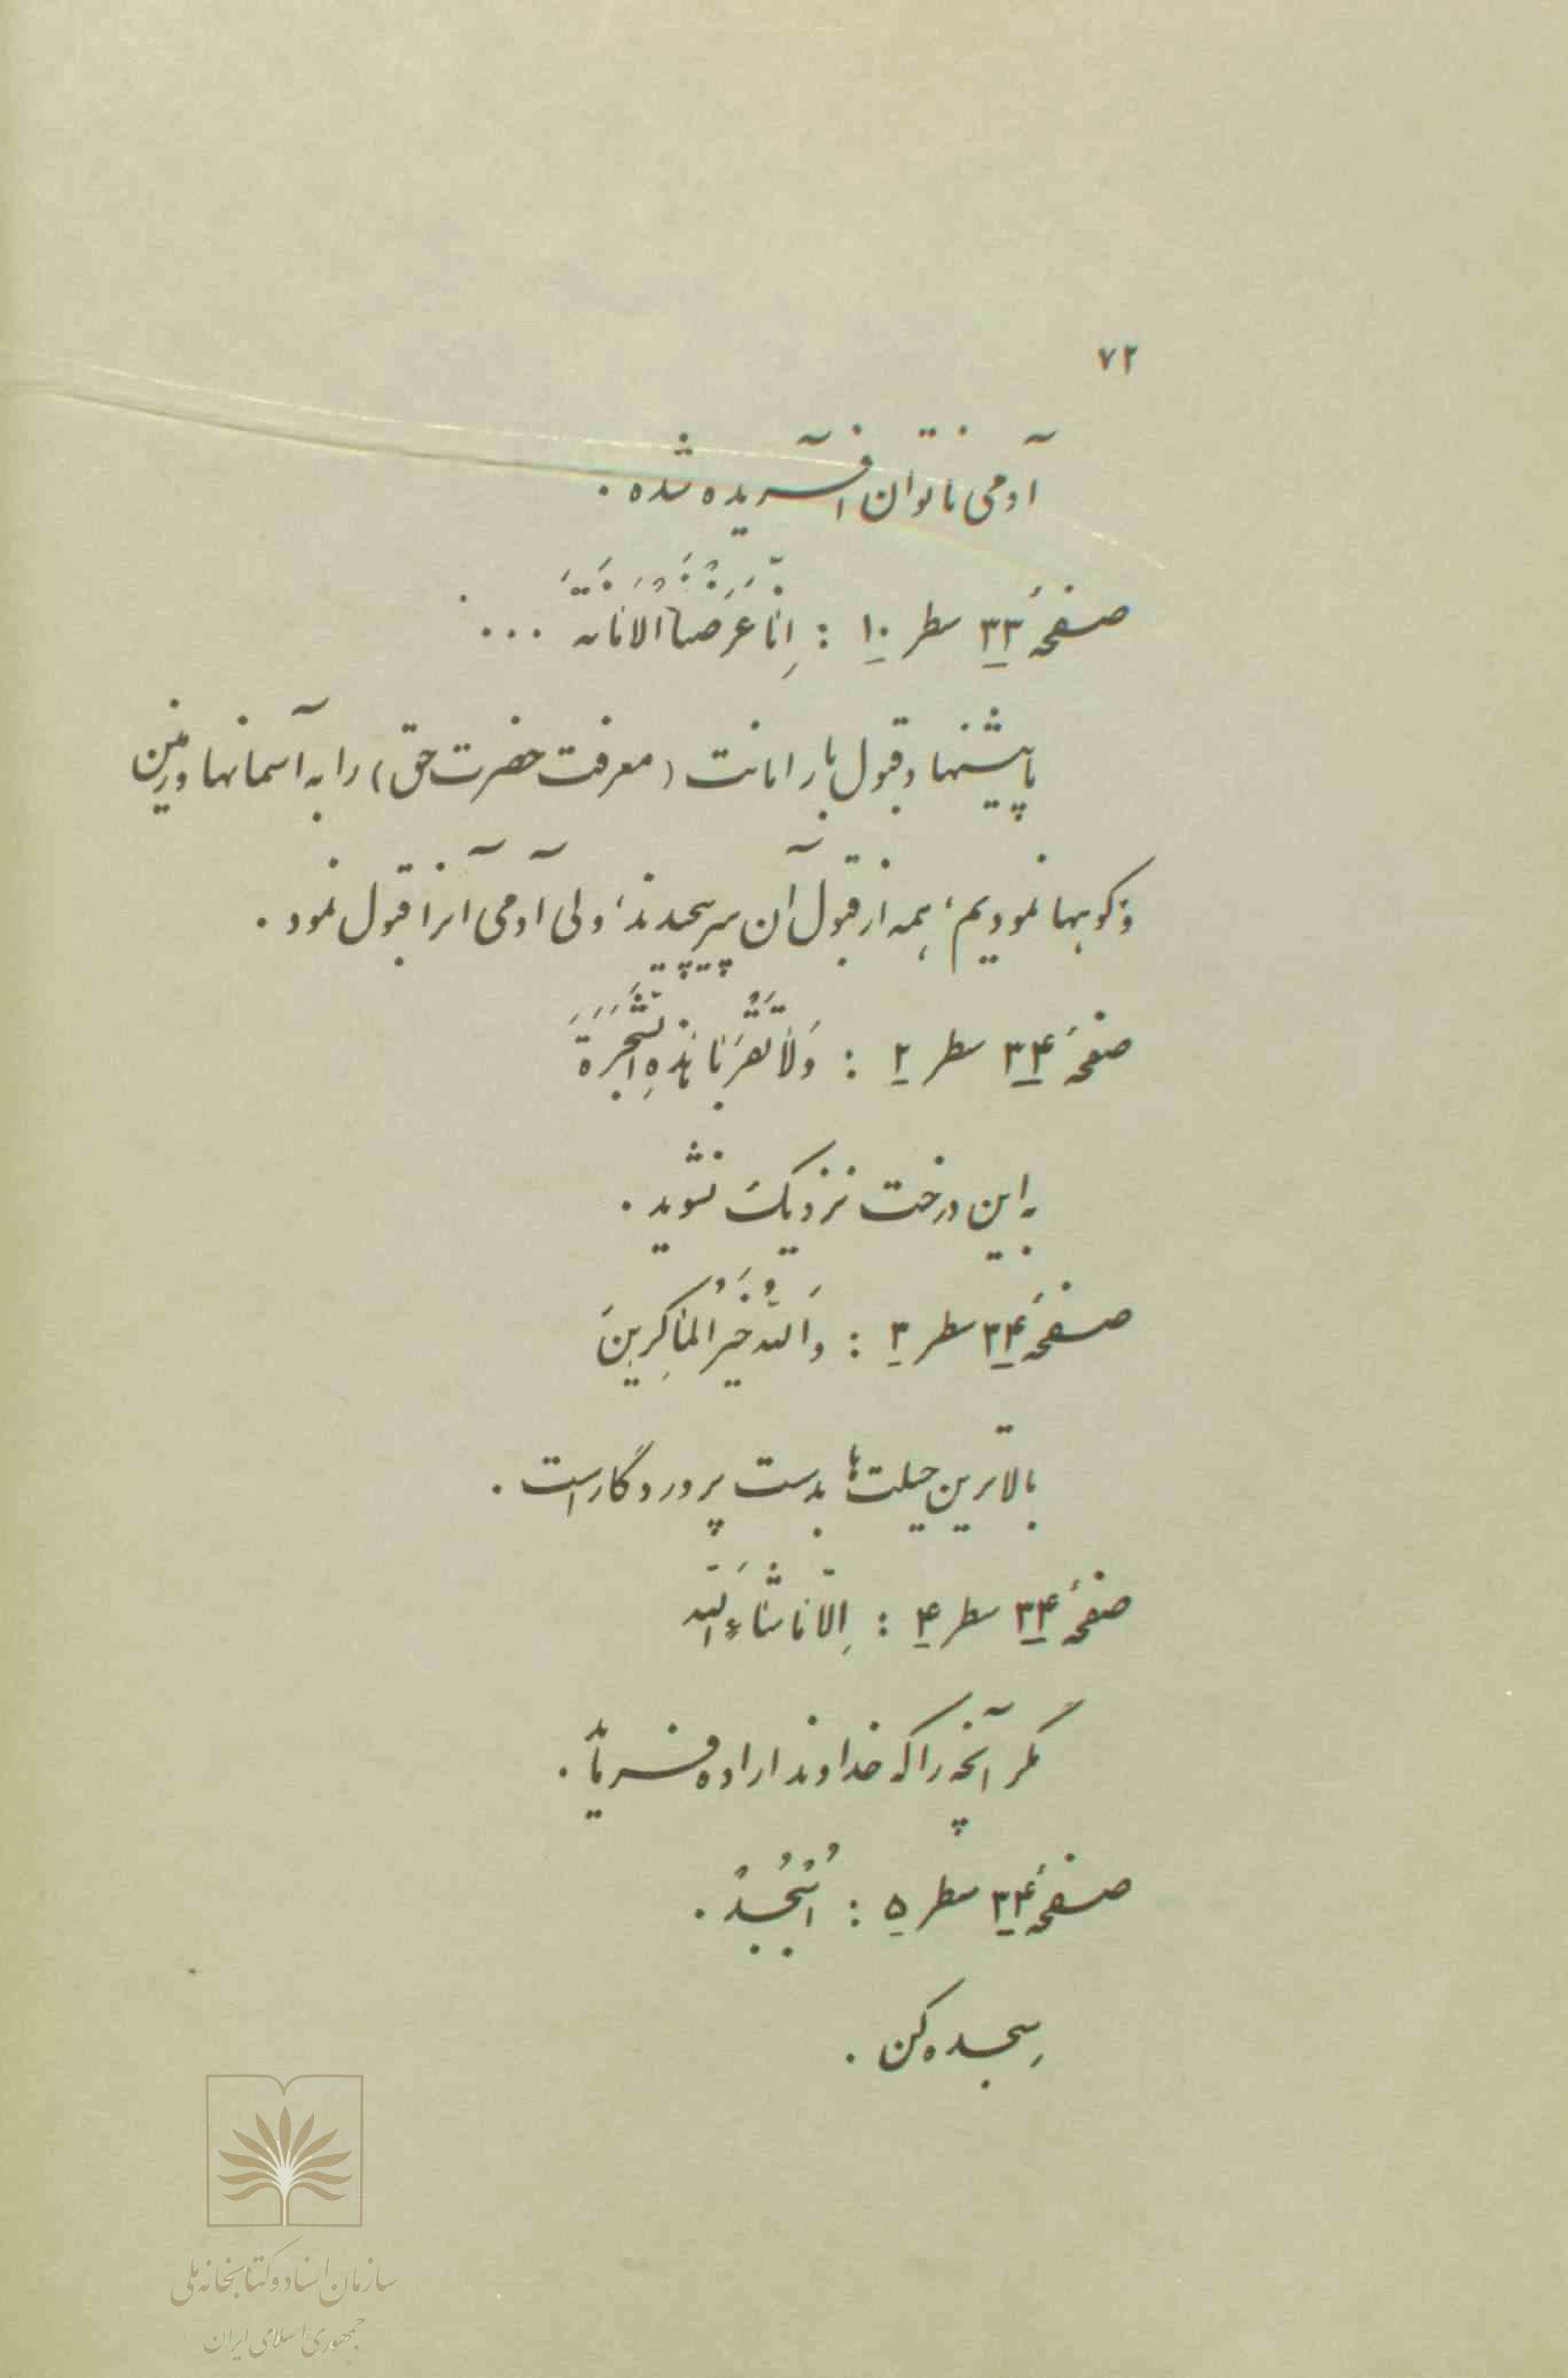 ۷۲
آدمی ناتوان آفریده شده .
صفحهٔ ۳۳ سطر ۱۰ : اِنّا عَرَضْنَا الْاَمانَةَ ...
ما پیشنهاد قبول بار امانت (معرفت حضرت حق) را به آسمانها و زمین
و کوهها نمودیم، همه از قبول آن سرپیچیدند، ولی آدمی آنرا قبول نمود .
صفحهٔ ۳۴ سطر ۲ : وَلا تَقْرَبا هٰذِهِ الشَّجَرَةَ
به این درخت نزدیک نشوید .
صفحهٔ ۳۴ سطر ۳ : وَاللّهُ خَیْرُ الْماکِرینَ
بالاترین حیلت‌ها بدست پروردگار است .
صفحهٔ ۳۴ سطر ۴ : اِلّا ماشاءَ اللّه
مگر آنچه را که خداوند اراده فرماید .
صفحهٔ ۳۴ سطر ۵ : اُسْجُدْ .
سجده کن .
سازمان اسناد و کتابخانه ملی
جمهوری اسلامی ایران